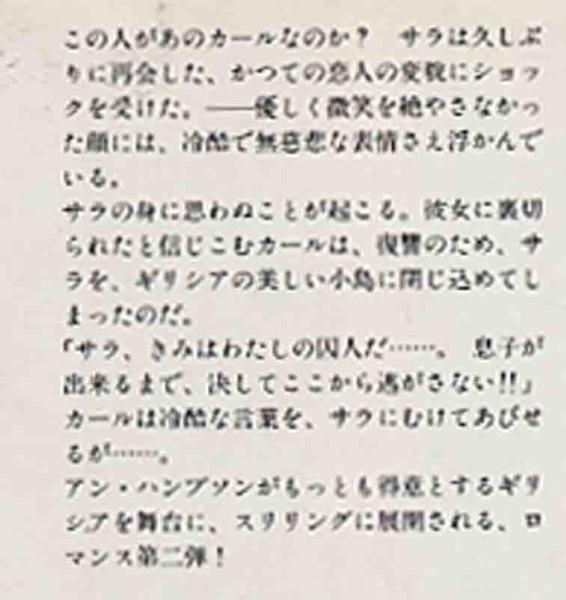 この人があのカールなのか？　サラは久しぶ
りに再会した、かつての恋人の変貌にショッ
クを受けた。――優しく微笑を絶やさなかっ
た顔には、冷酷で無慈悲な表情さえ浮かんで
いる。
サラの身に思わぬことが起こる。彼女に裏切
られたと信じこむカールは、復讐のため、サ
ラを、ギリシアの美しい小島に閉じ込めてし
まったのだ。
「サラ、きみはわたしの囚人だ……。　息子が
出来るまで、決してここから逃がさない!!」
カールは冷酷な言葉を、サラにむけてあびせ
るが……。
アン・ハンプソンがもっとも得意とするギリ
シアを舞台に、スリリングに展開される、ロ
マンス第二弾！